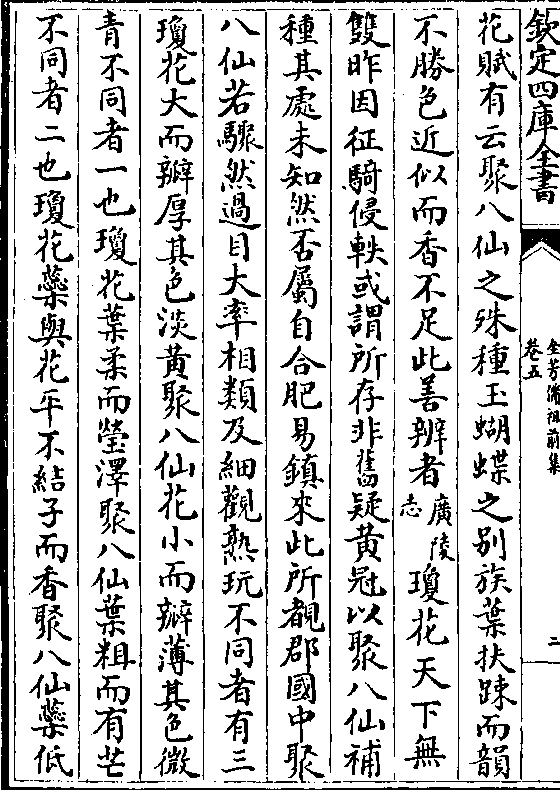 欽定四庫全書
全芳備祖前集
卷五
二
花賦有云聚八仙之殊種玉蝴蝶之别族葉扶踈而韻
不勝色近似而香不足此善辨者廣陵志瓊花天下無
雙昨因征騎侵軼或謂所存非舊疑黄冠以聚八仙補
種其處未知然否屬自合肥易鎮來此所覩郡國中聚
八仙若驟然過目大率相類及細觀熟玩不同者有三
瓊花大而瓣厚其色淡黄聚八仙花小而瓣薄其色微
青不同者一也瓊花葉柔而瑩澤聚八仙葉粗而有芒
不同者二也瓊花蘂與花平不結子而香聚八仙蘂低